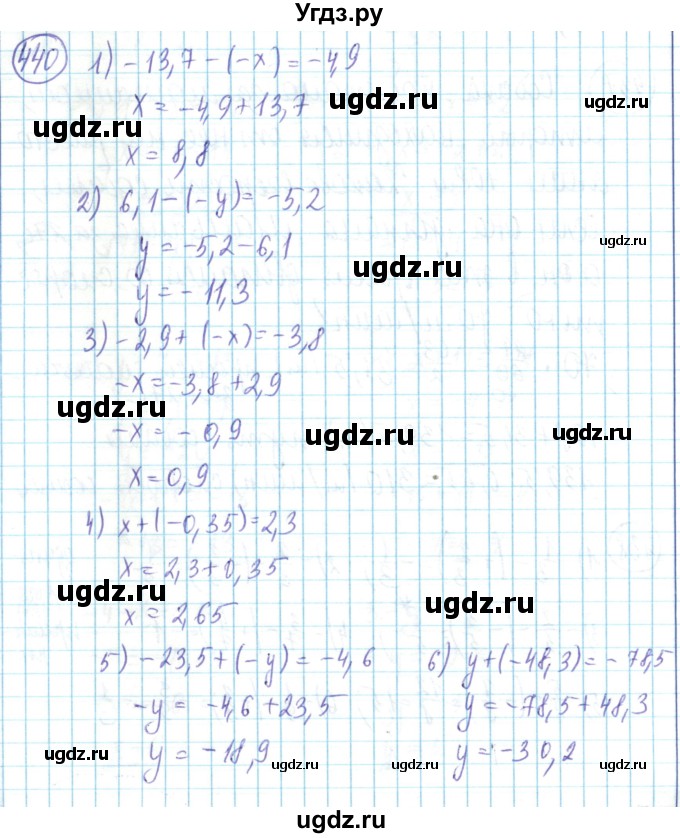 Угдз.ру
440 1) -13,7 - (-x) = -4,9
x = -4,9 + 13,7
ugdz.ru ugdz.ru ugdz.ru
x = 8,8
2) 6,1 - (-y) = -5,2
ugdz.ru
y = -5,2 - 6,1
ugdz.ru
y = -11,3
3) -2,9 + (-x) = -3,8
-x = -3,8 + 2,9
ugdz.ru
-x = -0,9
ugdz.ru ugdz.ru
x = 0,9
4) x + (-0,35) = 2,3
x = 2,3 + 0,35
ugdz.ru
x = 2,65
ugdz.ru
5) -23,5 + (-y) = -4,6 6) y + (-48,3) = -78,5
-y = -4,6 + 23,5 y = -78,5 + 48,3
y = -18,9 y = -30,2
ugdz.ru ugdz.ru ugdz.ru ugdz.ru
ugdz.ru